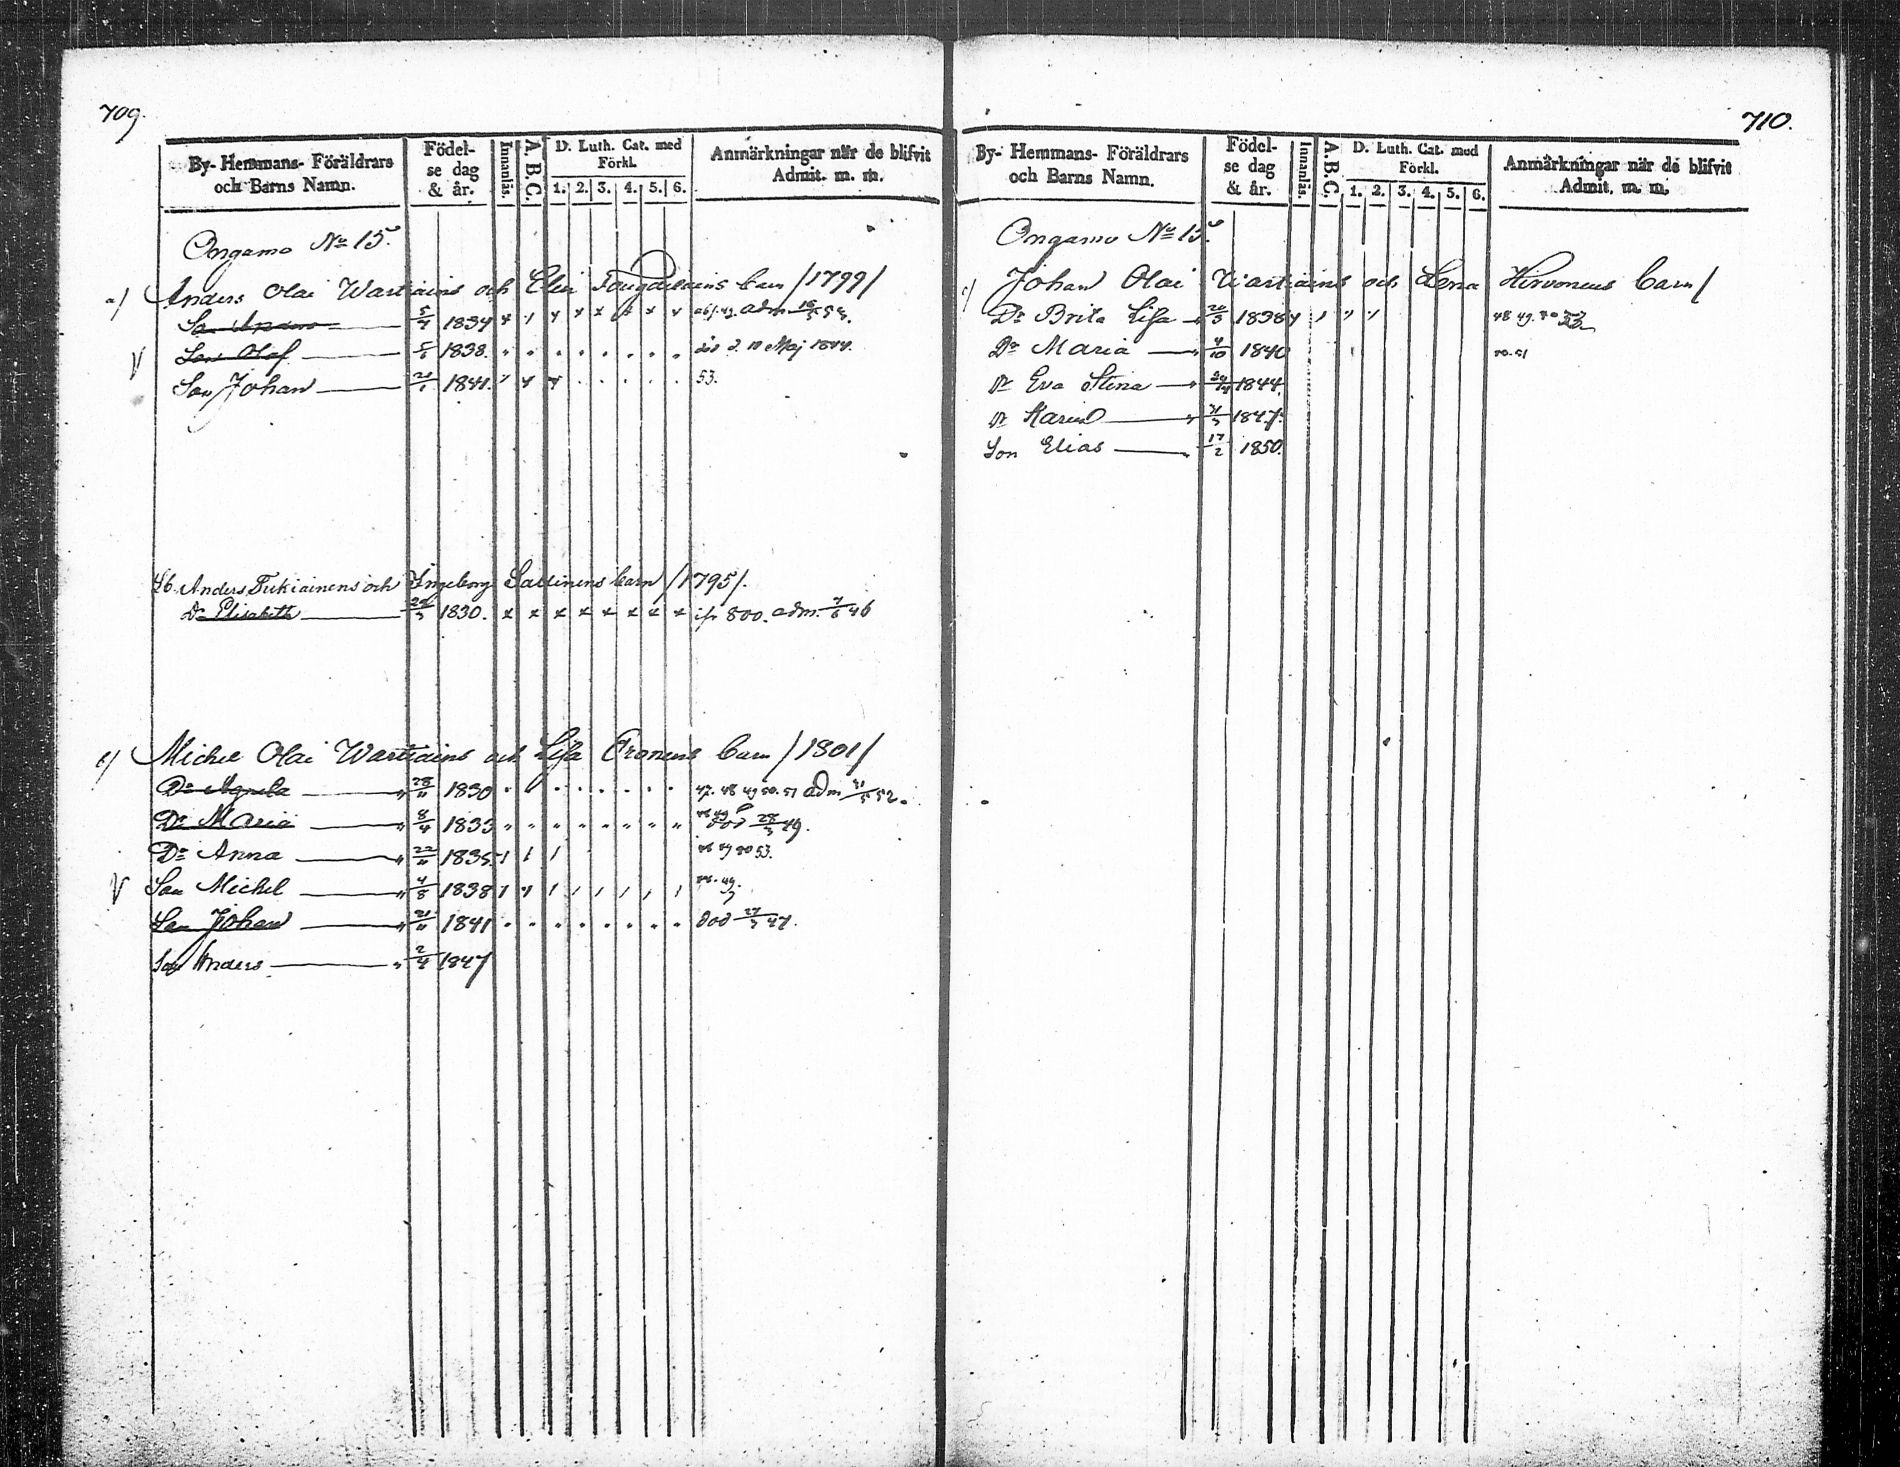 709.
By- Hemmans- Föräldrars och Barns Namn.
Födel-se dag & år.
Innanläs.
A. B. C.
D. Luth. Cat. med Förkl.
1. 2. 3. 4. 5. 6.
Anmärkningar när de blifvit Admit. m. m.
Ongamo No 15.
a/ Anders Olai Wartiains och Elin barn /1799/
Son Anders 5/4 1834 adm
Son Olaf 1838. död d. 10 Maj 1844.
Son Johan 21/1 1841. 53.
Sb. Anders Tukiainens och Ingeborg Sallinens barn /1795/.
Dr Elisabeth 1830. 800. adm. 7/6 46
c/ Michel Olai Wartiains och Lisa barn /1801/
Dr 28/11 1830 47. 48 49 50. 51 adm 52.
Dr Maria 8/4 1833 död 28/3 49.
Dr Anna 22/11 1835 53.
Son Michel 4/8 1838 49.
Son Johan 21/11 1841 död 27/3 47.
Son Anders 2/4 1847
710.
By- Hemmans- Föräldrars och Barns Namn.
Födel-se dag & år.
Innanläs.
A. B. C.
D. Luth. Cat. med Förkl.
1. 2. 3. 4. 5. 6.
Anmärkningar när de blifvit Admit. m. m.
Ongamo No 15.
Johan Olai Wartiains och Lena Hirvonens barn/
Dr Brita Lisa 1838 48 49. 50
Dr Maria 4/10 1840 50. 51
Dr Eva Stina 1844.
Dr Karin 1847.
Son Elias 17/2 1850.